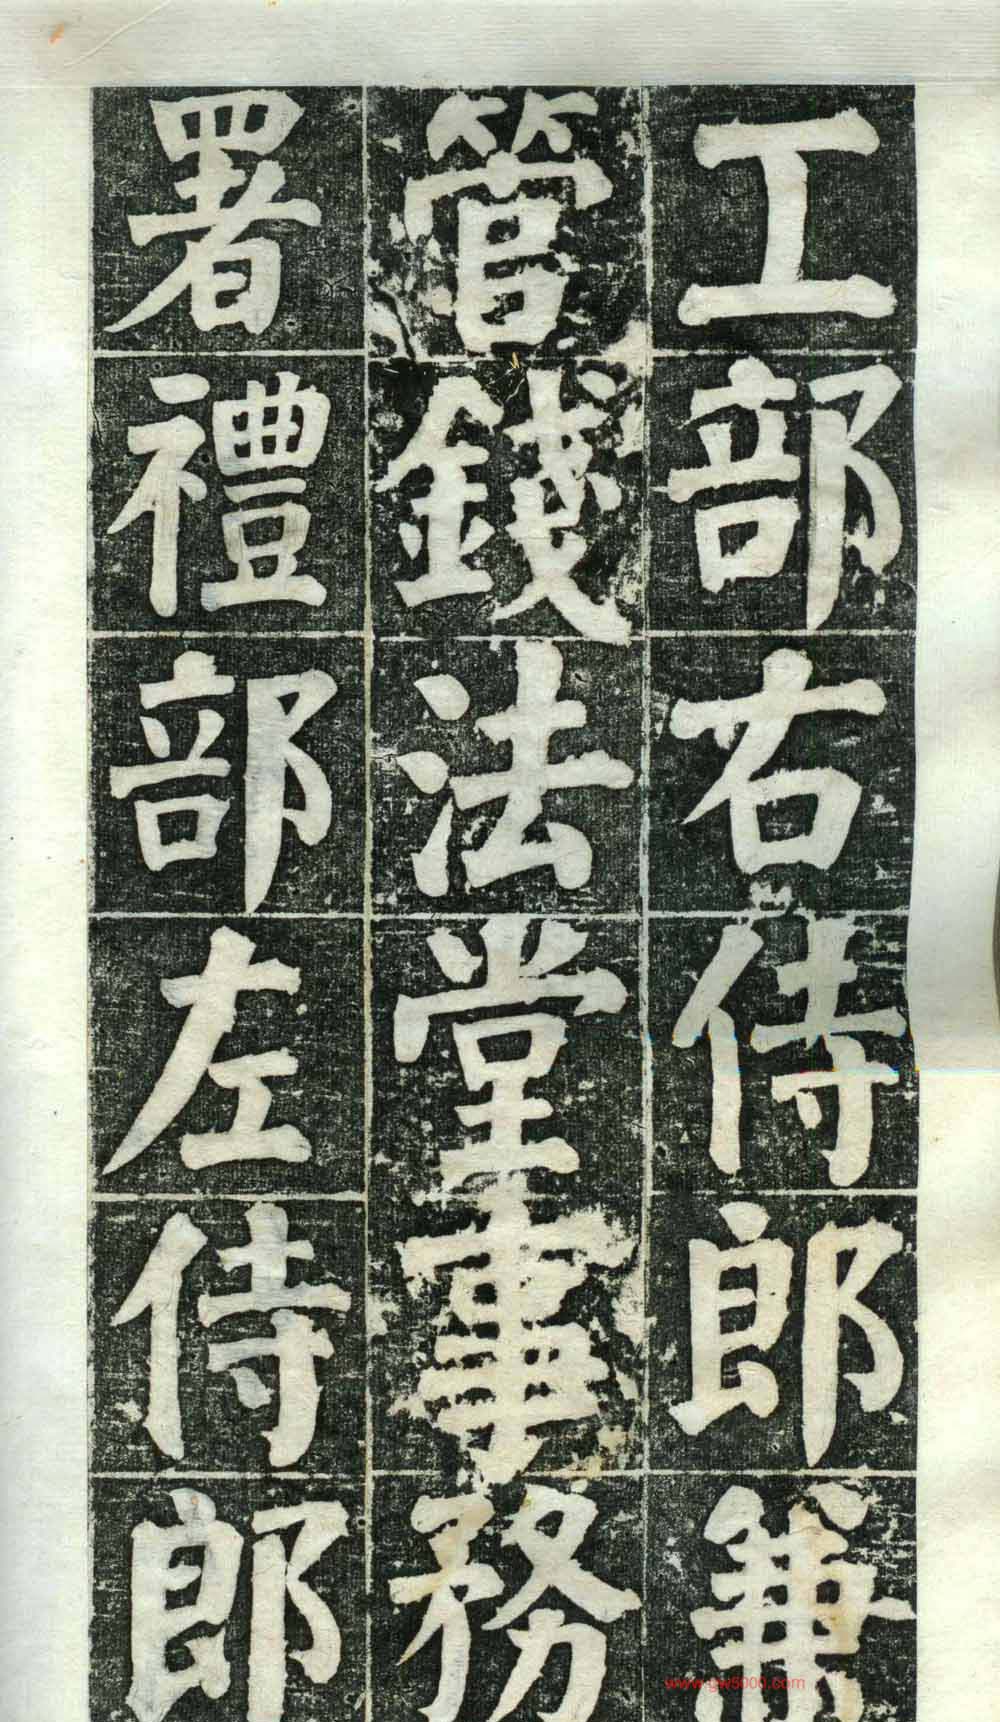 工部右侍郎兼
管錢法堂事務
署禮部左侍郎
www.gw5000.com